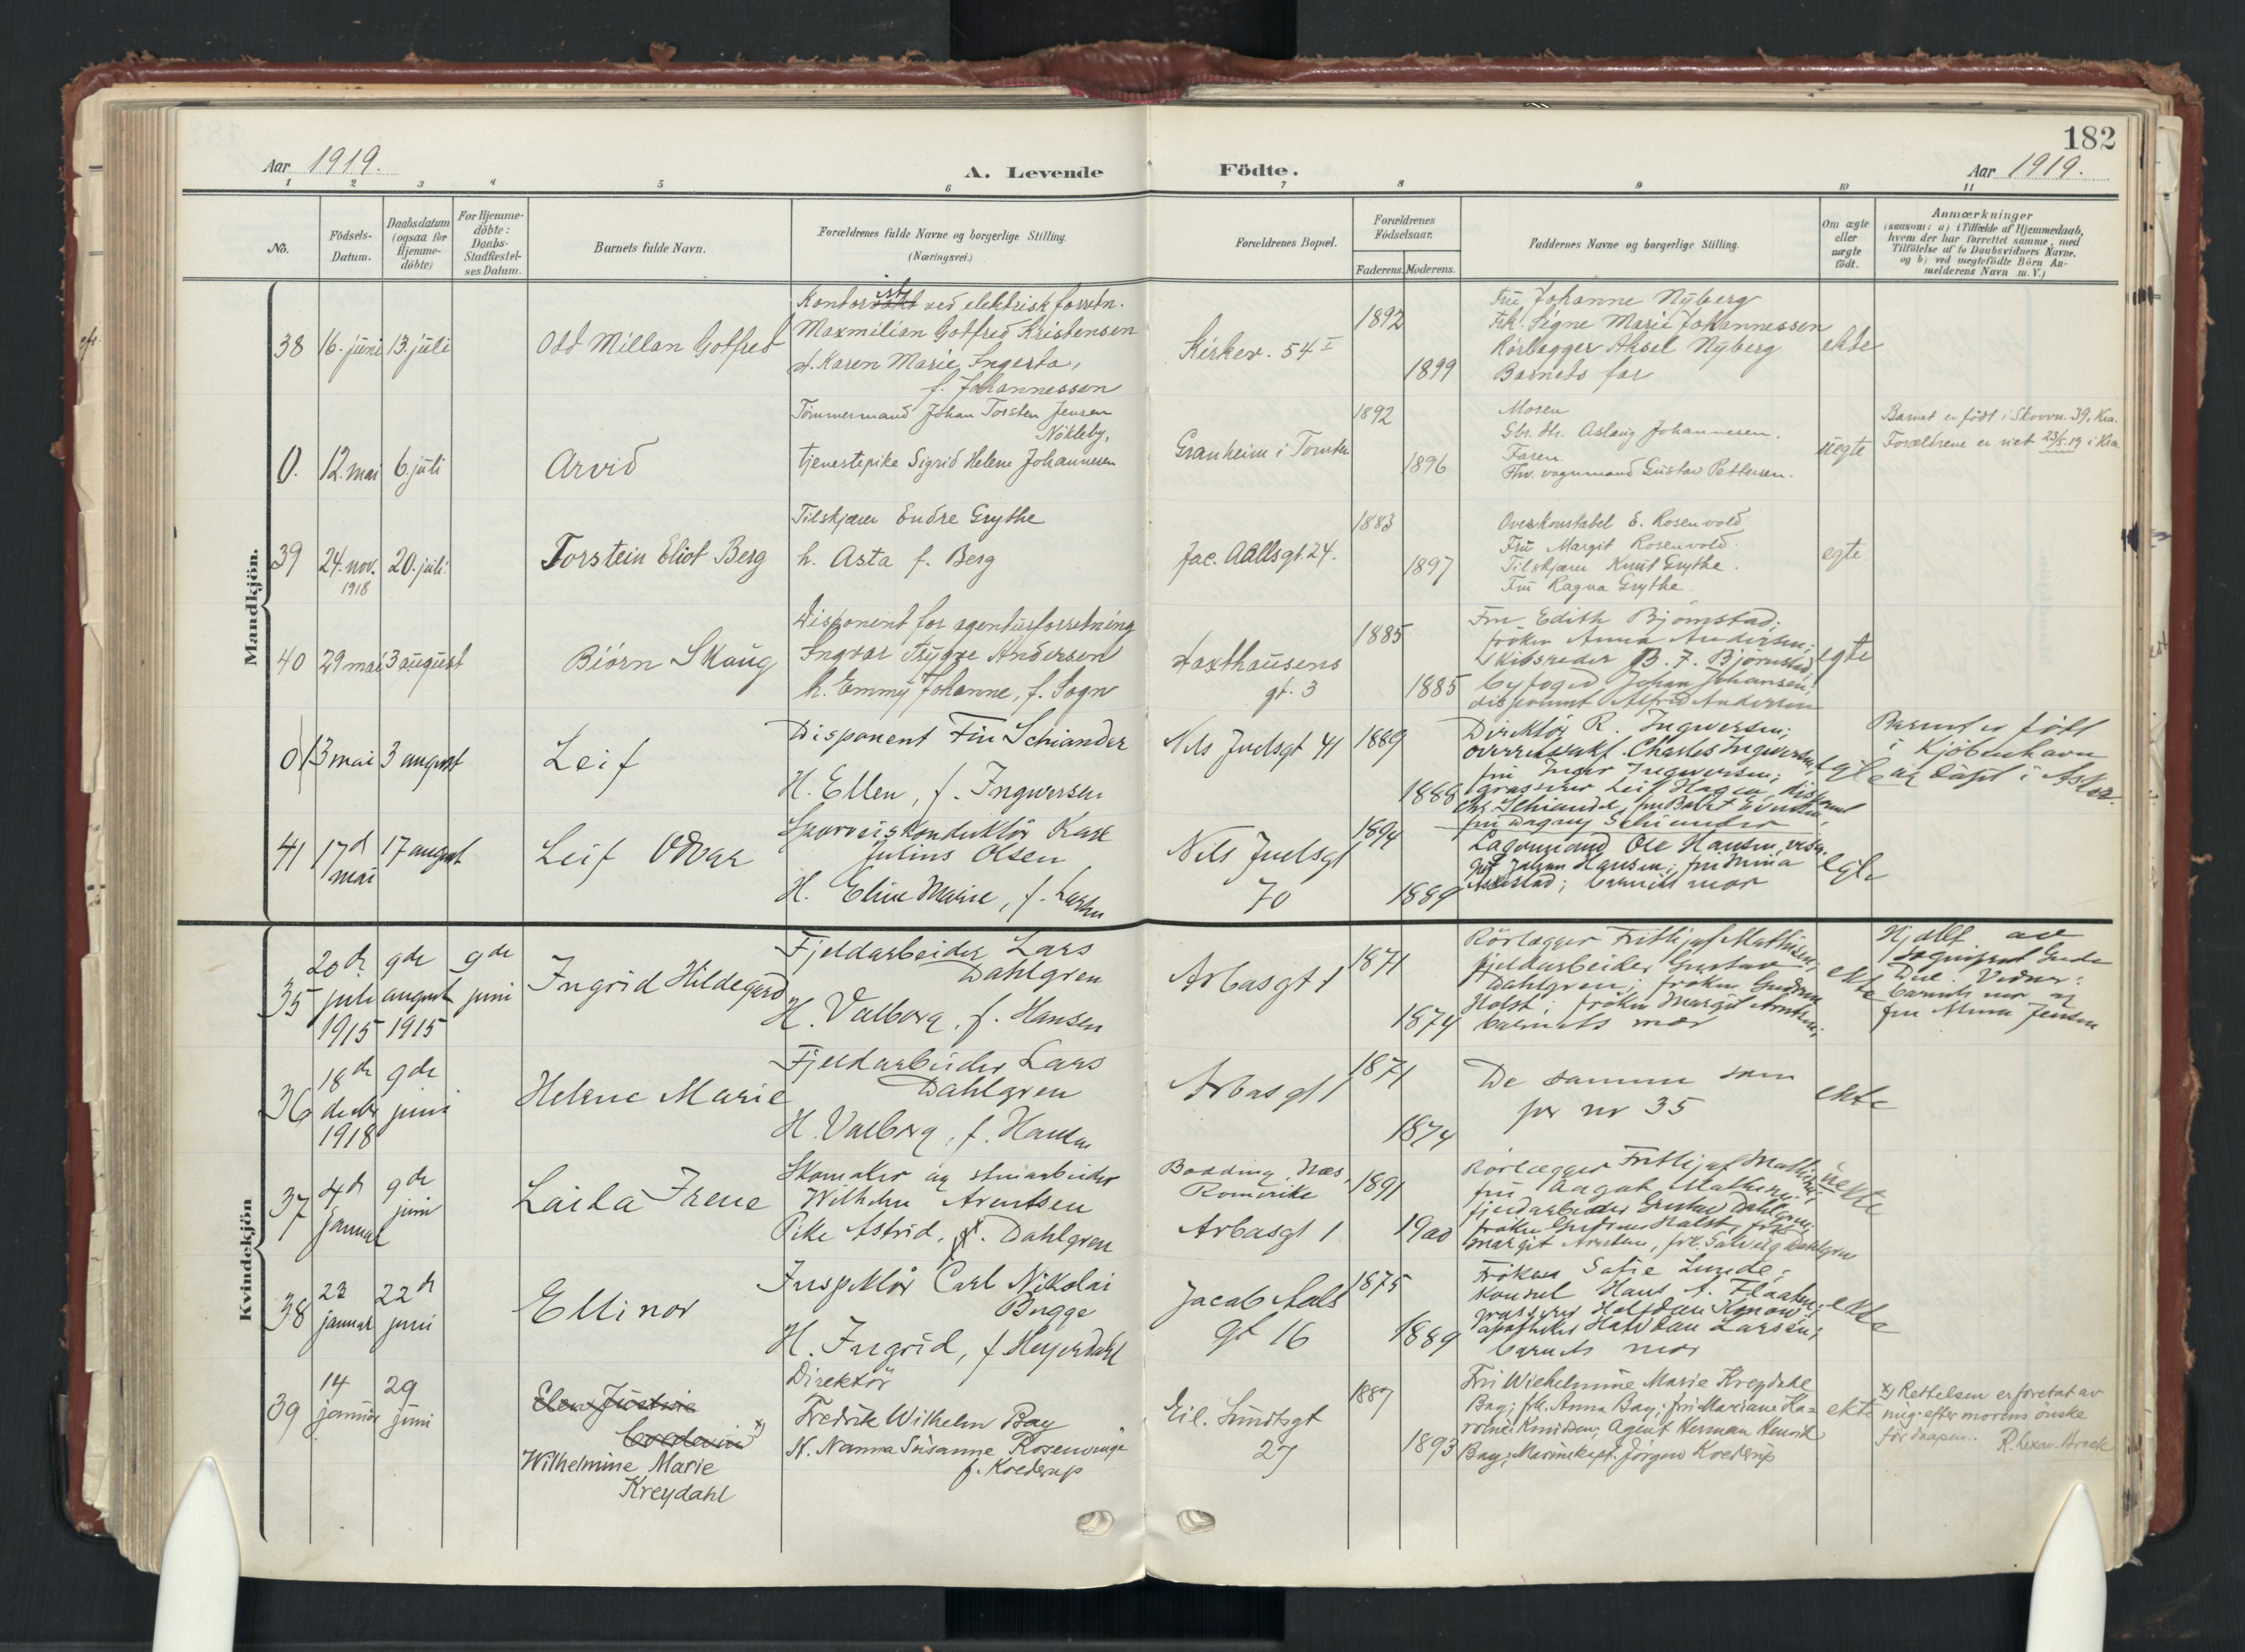 182
Aar 1919.
A. Levende
Födte.
Aar 1919.
1 2 3 4 5 6 7 8 9 10 11
No.
Födsels-
Datum.
Daabsdatum
(ogsaa for
Hjemme-
döbte)
For Hjemme-
döbte:
Daabs-
Stadfæstel-
ses Datum.
Barnets fulde Navn.
Forældrenes fulde Navne og borgerlige Stilling.
(Næringsvei.)
Forældrenes Bopæl.
Forældrenes
Födselsaar.
Faderens. Moderens.
Faddernes Navne og borgerlige Stilling.
Om ægte
eller
uægte
födt.
Anmærkninger
(saasom: a) i Tilfælde af Hjemmedaab,
hvem der har forrettet samme, med
Tilföielse af to Daabsvidners Navne.
og b) ved uægtefödte Börn An-
melderens Navn m. V.)
Mandkjön.
38
16. juni
13. juli
Odd Millan Gotfred
ved elektrisk forretn.
Maxmilian Gotfred Kristensen
h. Karen Marie Ingerta,
f. Johannessen
Kirkev. 54 I
1892
1899
Fru Johanne Nyberg
Frk. Signe Marie Johannessen
Rörlegger Aksel Nyberg
Barnets far
ekte
0.
12. mai
6. juli
Arvid
Tömmermand Johan Torsten Jensen
Nökleby,
tjenestepike Sigrid Helene Johannesen
Granheim i Tomter
1892
1896
Moren
Gbr. dtr. Aslaug Johannesen.
Faren.
Fhv. vognmand Gustav Pettersen.
uegte
Barnet er födt i Skovvn. 39, Kra.
Forældrene er viet 23/5.19 i Kra.
39
24. nov.
1918
20. juli
Torstein Eliot Berg
Tilskjærer Endre Grythe
h. Asta f. Berg
Jac. Aallsgt. 24.
1883
1897
Overkonstabel E. Rosenvold
Fru Margit Rosenvold.
Tilskjærer Knut Grythe.
Fru Ragna Grythe
egte
40
29 mai
3 august
Biörn Skaug
Disponent for agenturforretning
Ingvar Trygve Andersen
h. Emmy Johanne, f. Sogn
Haxthausens
gt. 3
1885
1885
Fru Edith Bjørnstad;
fröken Anna Andersen;
Skibsreder B. F. Bjørnstad;
byfoged Johan Johansen;
disponent Alfred Andersen
egte
0
13 mai
3 august
Leif
Disponent Fin Schiander
H. Ellen, f. Ingwersen
Nils Juelsgt 41
1889
1888
Direktör R. Ingwersen;
overretssakf. Charles Ingwersen,
fru Inger Ingwersen;
grosserer Leif Hagen, disponent
fru Dagny Schiander
egte
Barnet er födt
i Kjöbenhavn
og döpt i Asker.
41
17d
mai
17 august
Leif Odvar
Sporveiskonduktör Karl
Julius Olsen
H. Eline Marie, f. Larsen
Nils Juelsgt
70
1894
1889
Lagermand Ole Hansen,
Johan Hansen; fru Mina
barnets mor
egte
Kvindekjön
35
20de
juli
1915
9de
august
1915
9de
juni
Ingrid Hildegard
Fjeldarbeider Lars
Dahlgren
H. Valborg, f. Hansen
Arbosgt 1
1871
1874
Rörlægger Frithjof Mathisen;
fjeldarbeider Gustav
Dahlgren; fröken Gudrun
Holst; fröken Margit Arntsen;
barnets mor
ekte
Hjdbt av
Due. Vidner:
barnets mor og
fru Jensen
36
18de
decbr
1918
9de
juni
Helene Marie
Fjeldarbeider Lars
Dahlgren
H. Valborg, f. Hansen
Arbosgt 1
1871
1874
De samme som
for nr 35
ekte
37
4de
januar
9de
juni
Laila Irene
Skomaker og stenarbeider
Wilhelm Arentsen
Pike Astrid, Dahlgren
Bodding, Næs,
Romerike
Arbosgt 1
1891
1900
Rörlægger Frithjof Mathisen;
fru Aagot Mathisen;
fjeldarbeider Gustav Dahlgren;
fröken Gudrun Holst, frk.
Margit Arntsen, frk. Solveig Dahlgren
uekte
38
22
januar
22de
juni
Ellinor
Inspektör Carl Nikolai
Bugge
H. Ingrid, f Heyerdahl
Jacob Aals
gt 16
1875
1889
Fröken Sofie Lunde;
konsul Hans A. Flaaten;
grosserer Halfdan Kynow;
apotheker Halvdan Larsen;
barnets mor
ekte
39
14
januar
29
juni
Elen Justine
x)
Wilhelmine Marie
Kreydahl
Direktör
Fredrik Wilhelm Bay
H. Nanna Susanne Rosenvinge
f. Krederup
Eil. Sundtsgt
27
1887
1893
Fru Wilhelmine Marie Kreydahl
Bay; frk. Anna Bay; fru Mariane Ka-
roline Knudsen, Agent Herman Henrik
Bay; Marinekapt. Jörgen Krederup
ekte
x) Rettelsen er foretat av
mig efter morens önske
för daapen.